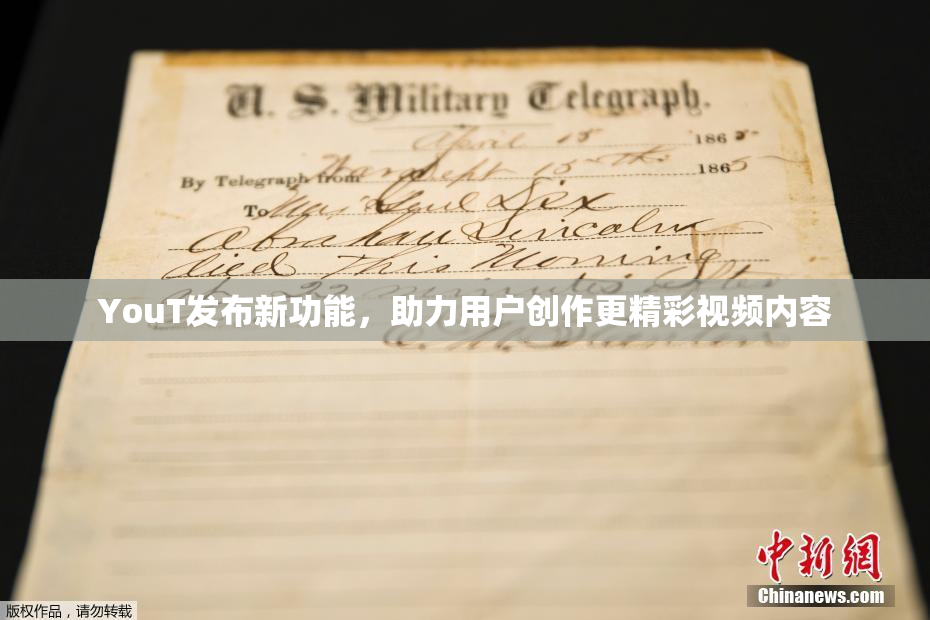 U. S. Military Telegraph.
April 15 1865
By Telegraph from War Dept 15th 1865
To Maj Genl Dix
Abraham Lincoln
died This Morning
at 22 minutes after
YouT发布新功能，助力用户创作更精彩视频内容
E. M. Stanton
中新网
Chinanews.com
版权作品，请勿转载